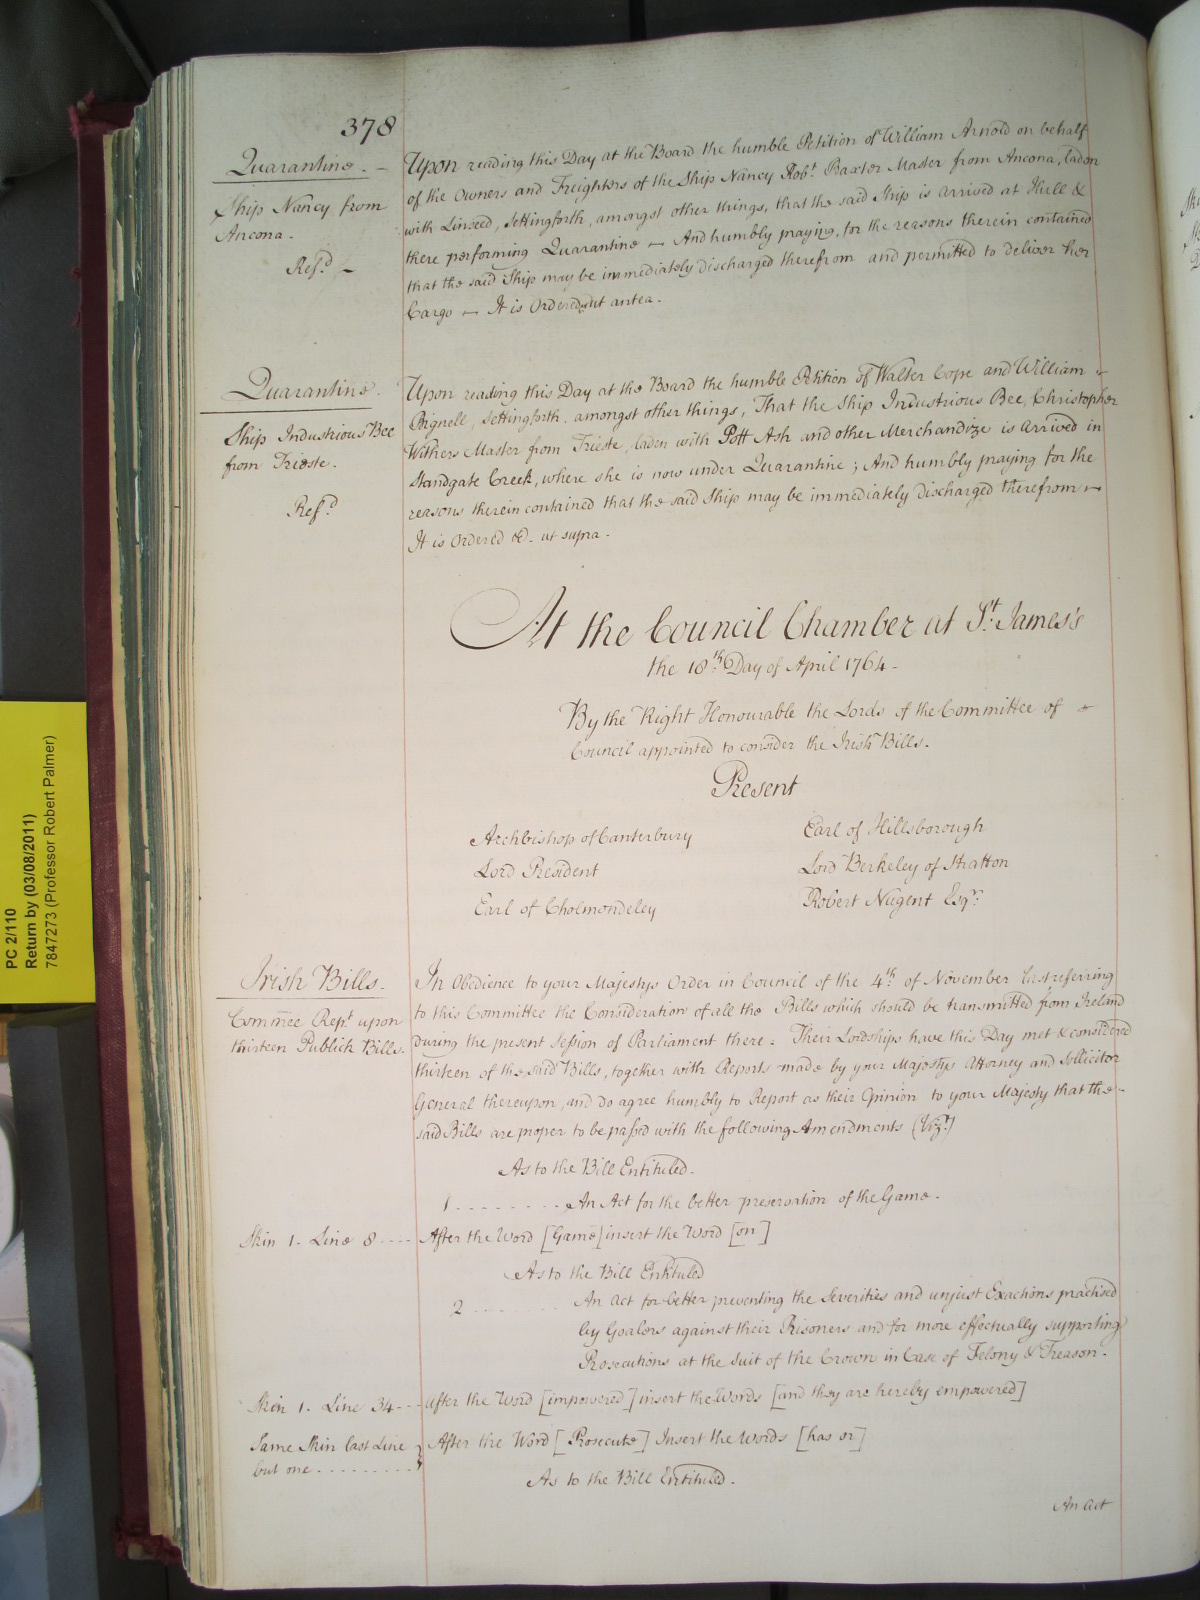 378
Quarantine. -
Ship Nancy from
Ancona.
Refd. -
Upon reading this Day at the Board the humble Petition of William Arnold on behalf
of the Owners and Freighters of the Ship Nancy Robt. Baxter Master from Ancona, laden
with Linseed, Setting forth, amongst other things, that the said Ship is arrived at Hull &
there performing Quarantine - And humbly praying, for the reasons therein contained
that the said Ship may be immediately discharged therefrom and permitted to deliver her
Cargo - It is Ordered ut antea.
Quarantine.
Ship Industrious Bee
from Trieste.
Refd.
Upon reading this Day at the Board the humble Petition of Walter Cope and William -
Bignell, Setting forth, amongst other things, That the Ship Industrious Bee, Christopher
Withers Master from Trieste, laden with Pott Ash and other Merchandize is arrived in
Standgate Creek, where she is now under Quarantine; And humbly praying for the
reasons therein contained that the said Ship may be immediately discharged therefrom -
It is Ordered &c. ut supra.
At the Council Chamber at St. James's
the 18th. Day of April 1764 -
By the Right Honourable the Lords of the Committee of -
Council appointed to consider the Irish Bills.
Present
Archbishop of Canterbury
Lord President
Earl of Cholmondeley
Earl of Hillsborough
Lord Berkeley of Stratton
Robert Nugent Esqr.
Irish Bills.
Commee Rept. upon
thirteen Publick Bills.
In Obedience to your Majestys Order in Council of the 4th. of November last referring
to this Committee the Consideration of all the Bills which should be transmitted from Ireland
during the present Session of Parliament there: Their Lordships have this Day met & considered
thirteen of the said Bills, together with Reports made by your Majestys Attorney and Sollicitor
General thereupon, and do agree humbly to Report as their Opinion to your Majesty that the -
said Bills are proper to be passed with the following Amendments (Vizt.)
As to the Bill Entituled.
1 . . . . . . . . An Act for the better preservation of the Game.
Skin 1. Line 8 . . . . After the Word [Game] insert the Word [on]
As to the Bill Entituled
2 . . . . . . . An Act for better preventing the Severities and unjust Exactions practised
by Goalers against their Prisoners and for more effectually supporting
Prosecutions at the Suit of the Crown in Case of Felony & Treason.
Skin 1. Line 34 - - - After the Word [impowered] insert the Words [and they are hereby empowered]
Same Skin last Line } After the Word [Prosecute] Insert the Words [has or]
but one . . . . . . . . .
As to the Bill Entituled.
An Act
PC 2/110
Return by (03/08/2011)
7847273 (Professor Robert Palmer)